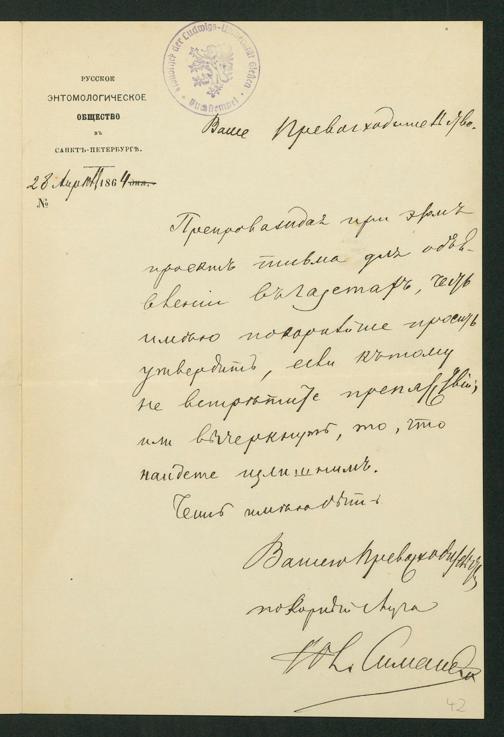 Bibliothek der Ludwigs-Universität Gießen
Buchstempel
РУССКОЕ
ЭНТОМОЛОГИЧЕСКОЕ
ОБЩЕСТВО
ВЪ
САНКТЪ-ПЕТЕРБУРГѢ.
28 Апрѣля 1864
№
Ваше Превосходительство.
Препровождая при этомъ
проектъ письма для объя-
вленія въ газетахъ, честь
имѣю покорнѣйше просить
утвердить, если къ тому
не встрѣтите препятствій,
или вычеркнуть, то, что
найдете излишнимъ.
Честь имѣю быть
Вашего Превосходительства
покорный слуга
Ю. Симашко
42